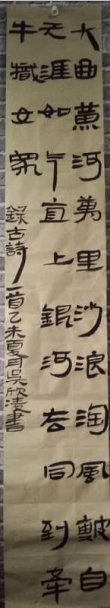 九曲黃河萬里沙浪淘風簸自
天涯如今直上銀河去同到牽
牛織女家
錄古詩一首乙未夏月吳欣書